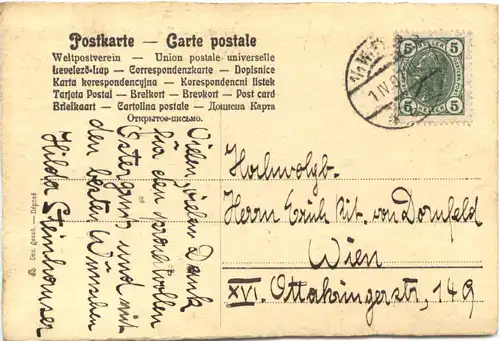 Postkarte — Carte postale
Weltpostverein — Union postale universelle
Levelező-Lap — Correspondenzkarte — Dopisnice
Karta korespondencyjna — Korespondencni listek
Tarjeta Postal — Brefkort — Brevkort — Post card
Briefkaart — Cartolina postale — Дописна Карта
Открытое-письмо.
5 5
5 5
1/1 W
1 IV
Vielen, vielen Dank
für den prachtvollen
Ostergruß und mit
den besten Wünschen
Hilda Steinhauser
Hochwolgb.
Herrn Erich Rit. von Dornfeld
Wien
XVI. Ottakringerstr, 149
Des. gesch. — Déposé